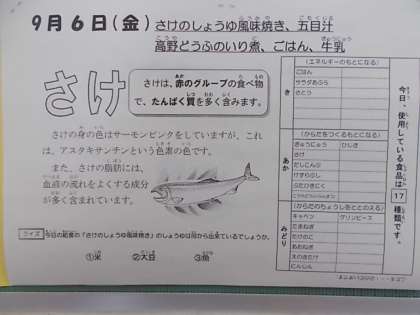 9月6日(金) さけのしょうゆ風味焼き、五目汁
高野どうふのいり煮、ごはん、牛乳
さけ
さけは、赤のグループの食べ物
で、たんぱく質を多く含みます。
さけの身の色はサーモンピンクをしていますが、これ
は、アスタキサンチンという色素の色です。
また、さけの脂肪には、
血液の流れをよくする成分
が多く含まれています。
クイズ 今日の給食の「さけのしょうゆ風味焼き」のしょうゆは何から出来ているでしょうか。
①米 ②大豆 ③魚
今日、使用している食品は17種類です。
き
(エネルギーのもとになる)
ごはん
サラダあぶら
さとう
あか
(からだをつくるもとになる)
ぎゅうにゅう ひじき
さけ
だしこんぶ
けずりぶし
ぶたひきにく
みどり
(からだのちょうしをととのえる)
キャベツ グリンピース
たまねぎ
たけのこ
えのきたけ
にんじん